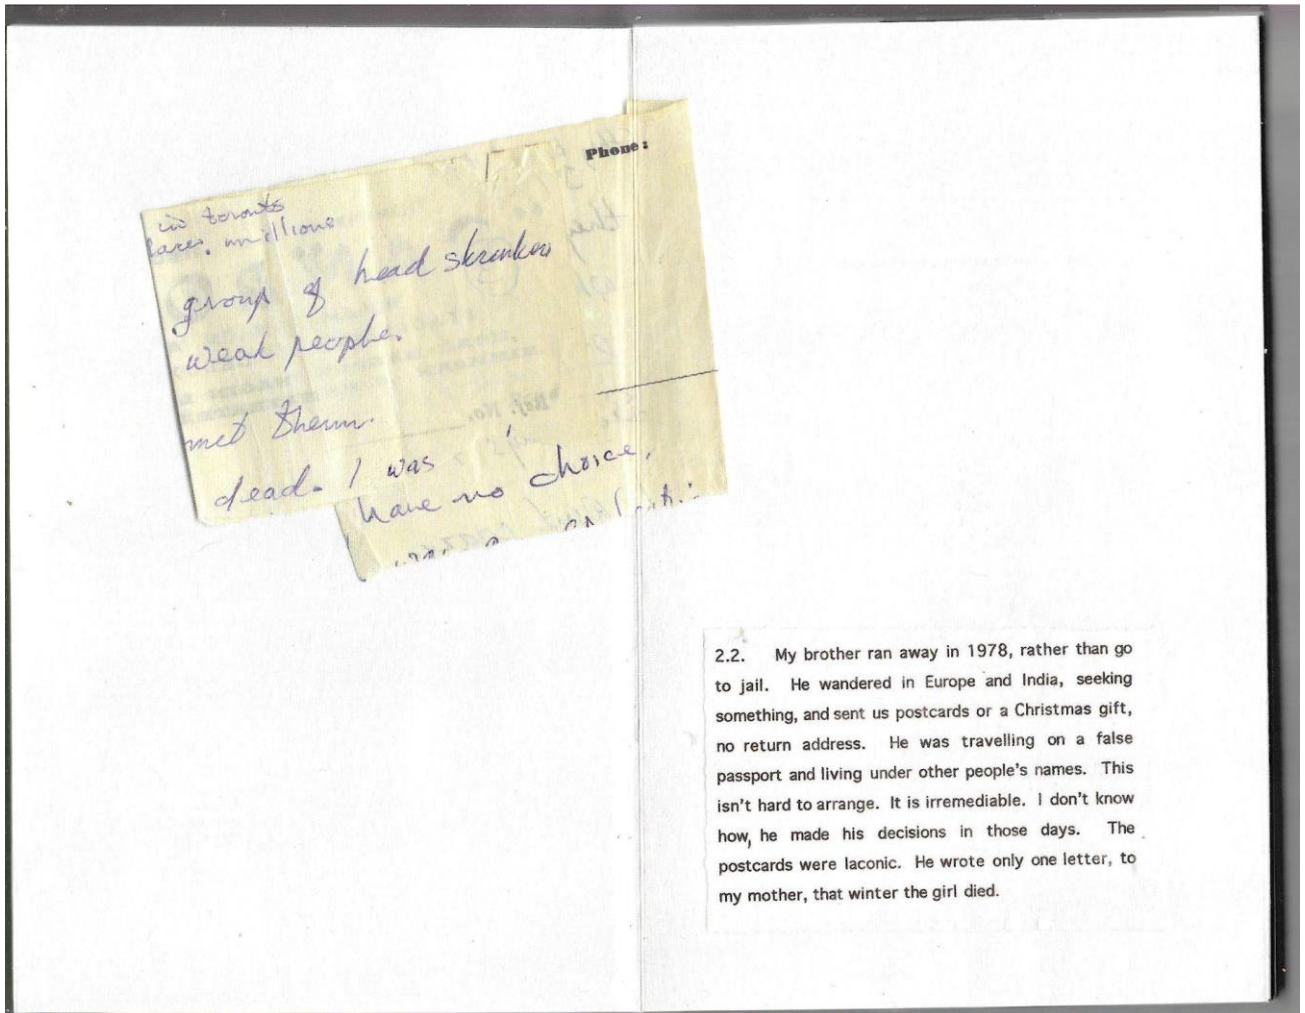 Phone:
in toronto
millions
group of head shrinkers
weak people.
met them.
Ref. No.
dead. I was
have no choice,
2.2. My brother ran away in 1978, rather than go
to jail. He wandered in Europe and India, seeking
something, and sent us postcards or a Christmas gift,
no return address. He was travelling on a false
passport and living under other people's names. This
isn't hard to arrange. It is irremediable. I don't know
how, he made his decisions in those days. The
postcards were laconic. He wrote only one letter, to
my mother, that winter the girl died.